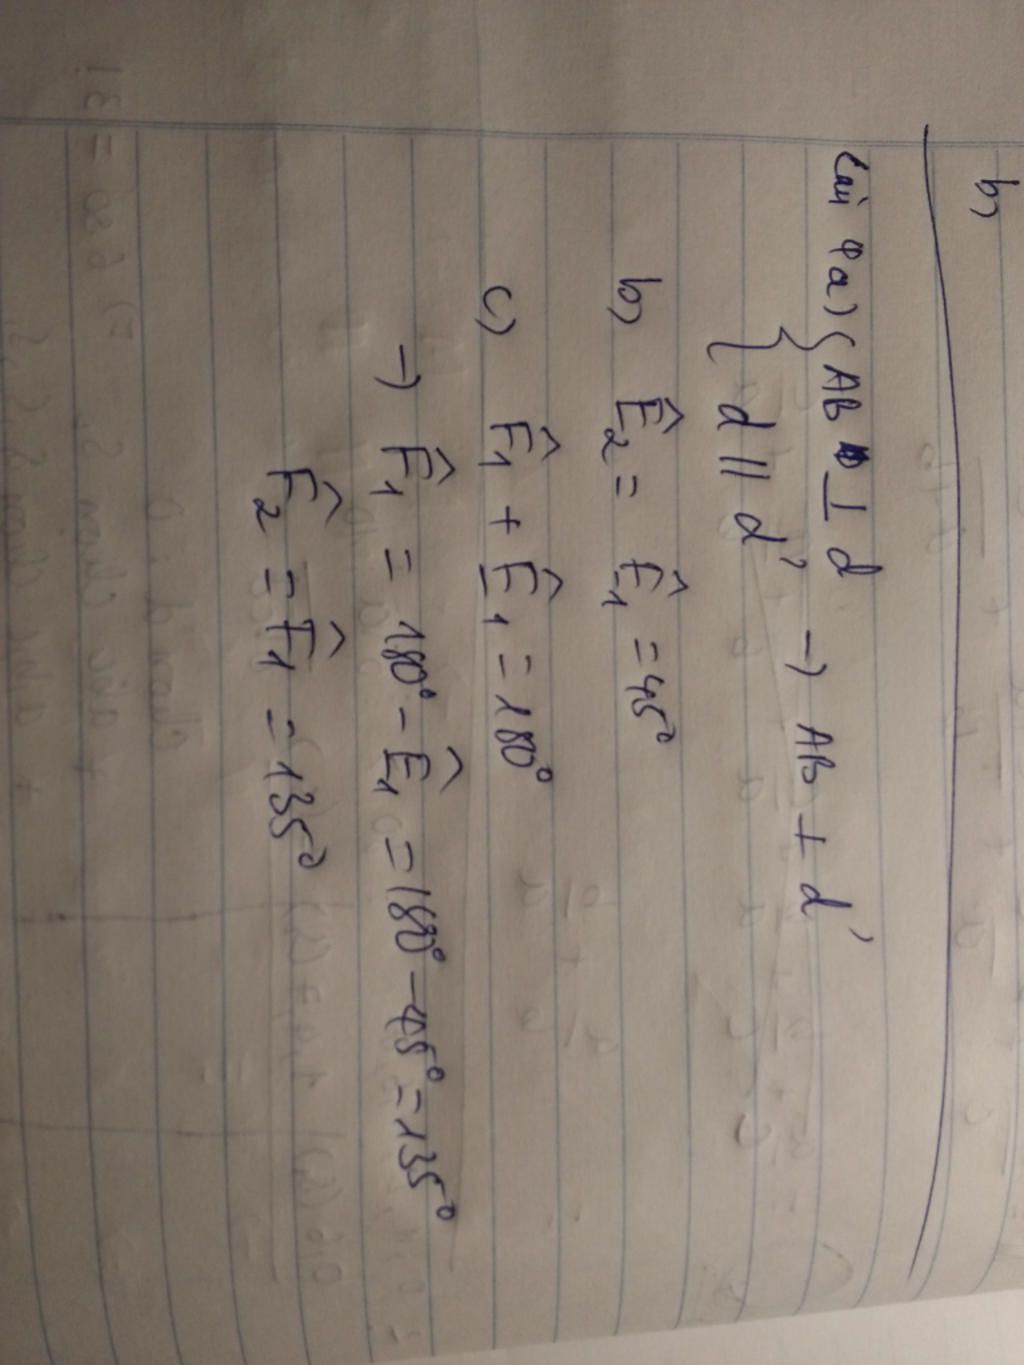 b)
Câu 4 a) { AB ⊥ d
d // d' → AB ⊥ d'
b) Ê₂ = Ê₁ = 45°
c) F̂₁ + Ê₁ = 180°
→ F̂₁ = 180° - Ê₁ = 180° - 45° = 135°
F̂₂ = F̂₁ = 135°